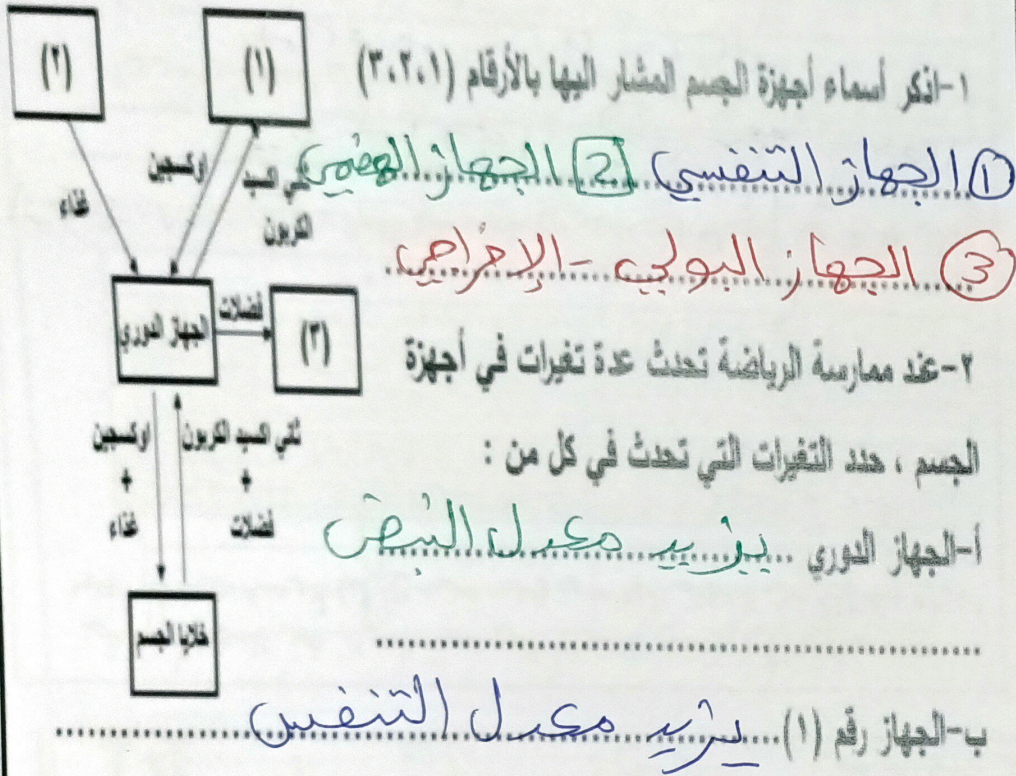 ١-اذكر أسماء أجهزة الجسم المشار اليها بالأرقام (٣،٢،١)
① الجهاز التنفسي 2 الجهاز الهضمي
③ الجهاز البولي - الإخراجي
٢-عند ممارسة الرياضة تحدث عدة تغيرات في أجهزة
الجسم ، حدد التغيرات التي تحدث في كل من :
أ-الجهاز الدوري يزيد معدل النبض
ب-الجهاز رقم (١) يزيد معدل التنفس
(٢)
(١)
غذاء
اوكسجين
ثاني اكسيد
الكربون
الجهاز الدوري
فضلات
(٣)
اوكسجين
+
غذاء
ثاني اكسيد الكربون
+
فضلات
خلايا الجسم